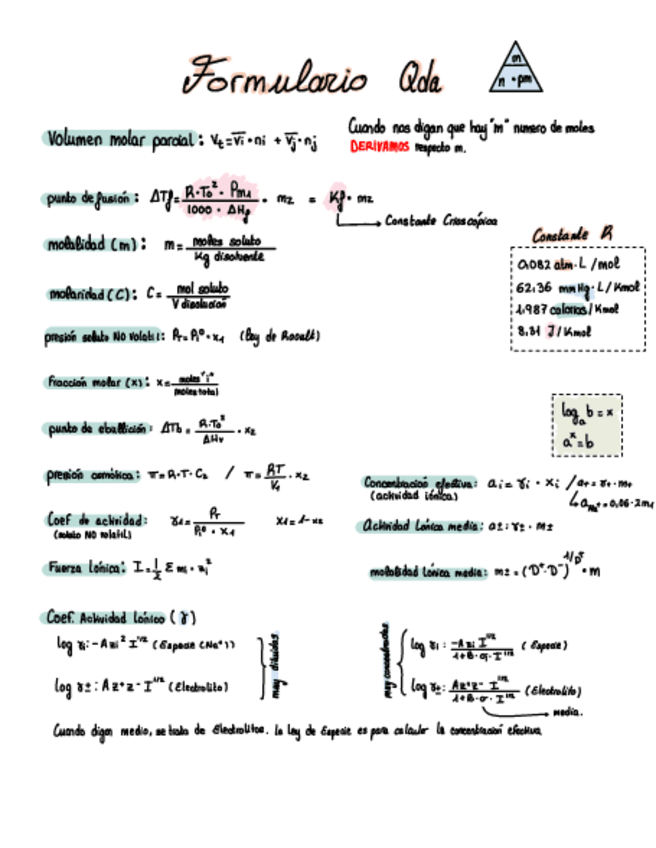 Formulario Qda
m
n · pm
Volumen molar parcial: Vt = V̅i · ni + V̅j · nj
Cuando nos digan que hay "m" numero de moles
DERIVAMOS respecto m.
punto de fusión: ΔTf = R·T₀²·Pm₁ / 1000·ΔHf · m₂ = Kf · m₂
Constante Crioscópica
molalidad (m): m = moles soluto / Kg disolvente
Constante R
0,082 atm·L/mol
62,36 mmHg·L/Kmol
1,987 calorias/Kmol
8,31 J/Kmol
molaridad (C): C = mol soluto / V disolución
presión soluto NO Volatil: PT = P₁⁰ · x₁ (Ley de Raoult)
Fracción molar (x): x = moles "i" / moles total
logₐ b = x
aˣ = b
punto de ebullición: ΔTb = R·T₀² / ΔHv · x₂
presión osmótica: π = R·T·C₂ / π = RT / V₁ · x₂
Concentración efectiva: ai = γi · xi / a+ = γ+ · m+
(actividad iónica)
Coef de actividad: γ₁ = PT / P₁⁰ · x₁ x₁ = 1 - x₂
(soluto NO volatil)
Actividad Iónica media: a± : γ± · m±
Fuerza Iónica: I = 1/2 Σ mi · zi²
molalidad Iónica media: m± =
Coef. Actividad Iónico (γ)
log γi : -A zi² I^1/2 (Especie (Na⁺))
log γ± : A z+ z- I^1/2 (Electrolito)
muy diluidas
muy concentradas
log γi : -A zi I^1/2 / 1+B·σi·I^1/2 (Especie)
log γ± : A z+ z- I^1/2 / 1+B·σ·I^1/2 (Electrolito)
media.
Cuando digan medio, se trata de Electrolitos. la ley de Especie es para calcular la concentración efectiva